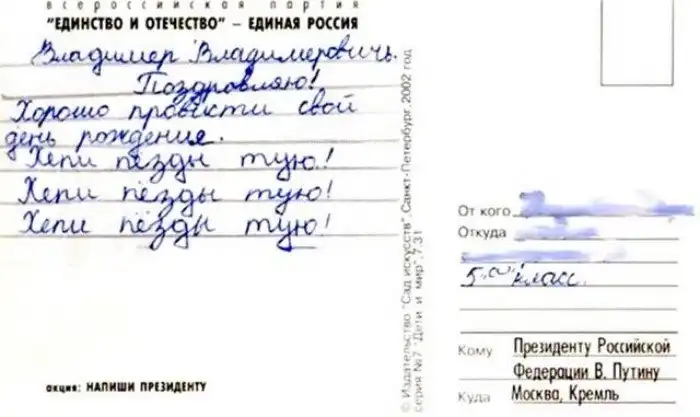 всероссийская партия
"ЕДИНСТВО И ОТЕЧЕСТВО" – ЕДИНАЯ РОССИЯ
Владимер Владимеровичь.
Поздровляю!
Хорошо провести свой
день рождения.
Хепи пёзды тую!
Хепи пёзды тую!
Хепи пёзды тую!
акция: НАПИШИ ПРЕЗИДЕНТУ
© Издательство "Сад искусств", Санкт-Петербург, 2002 год
серия №7 "Дети и мир", 7.31
От кого
Откуда
5 "а" класс.
Кому Президенту Российской
Федерации В. Путину
Куда Москва, Кремль